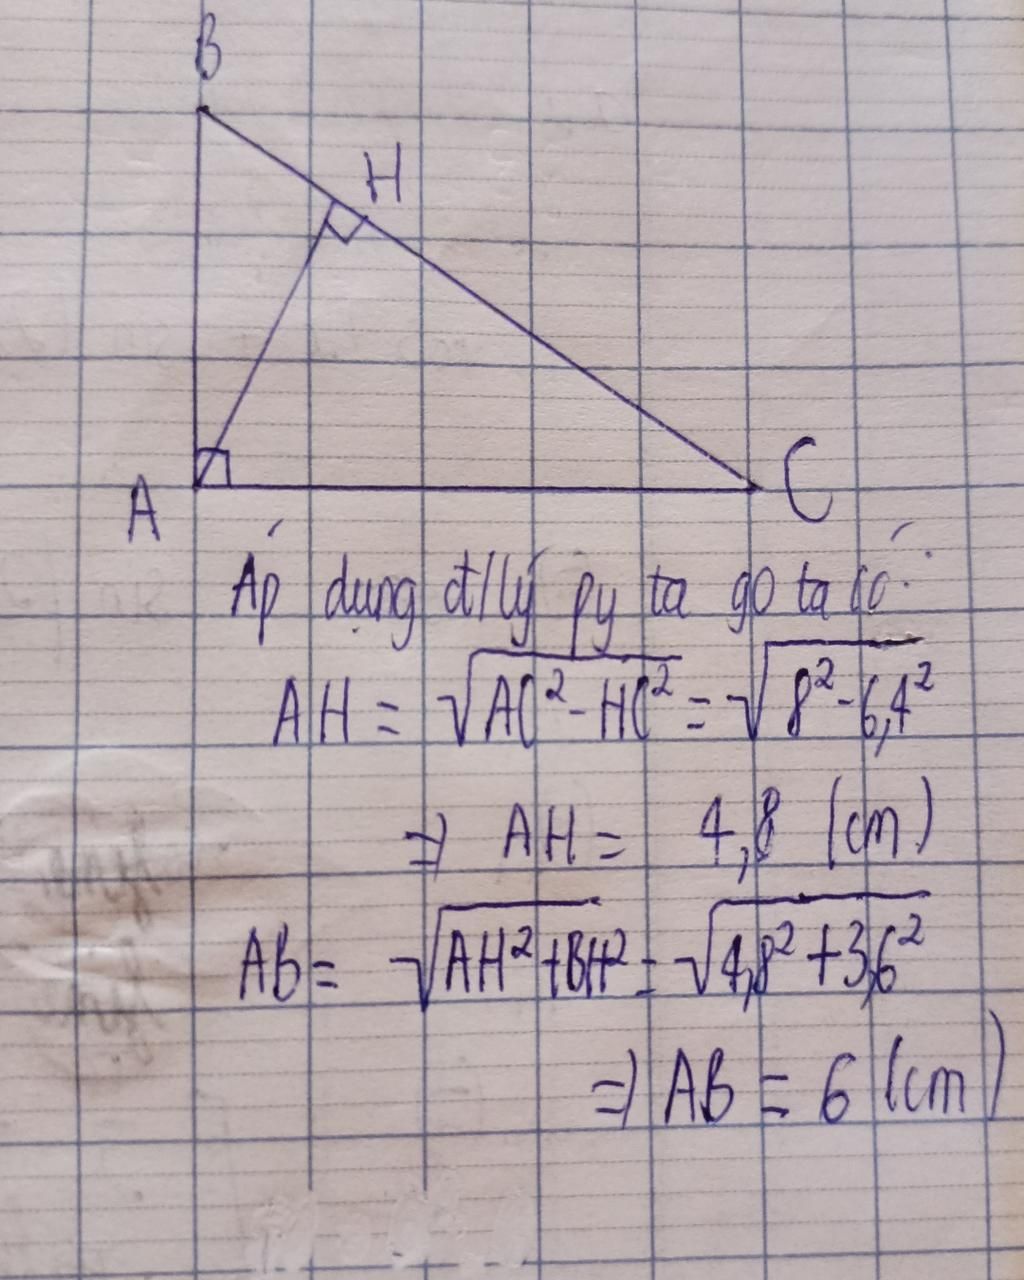 B
H
A
C
Áp dụng đ/lý py ta go ta có:
AH = √AC² - HC² = √8² - 6,4²
⇒ AH = 4,8 (cm)
AB = √AH² + BH² = √4,8² + 3,6²
⇒ AB = 6 (cm)